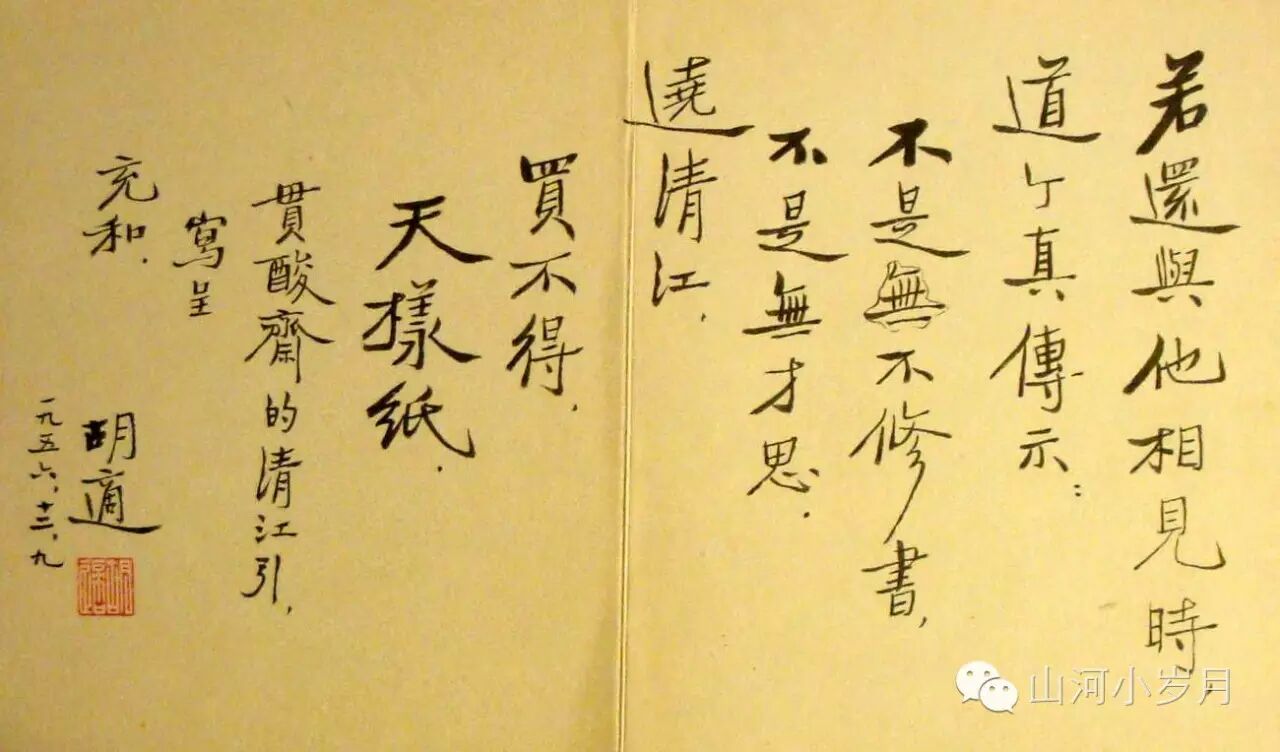 若還與他相見時,
道亇真傳示:
不是無不修書,
不是無才思.
遶清江,
買不得,
天樣紙.
貫酸齋的清江引,
寫呈
充和.
胡適
一九五六.十二.九
山河小岁月